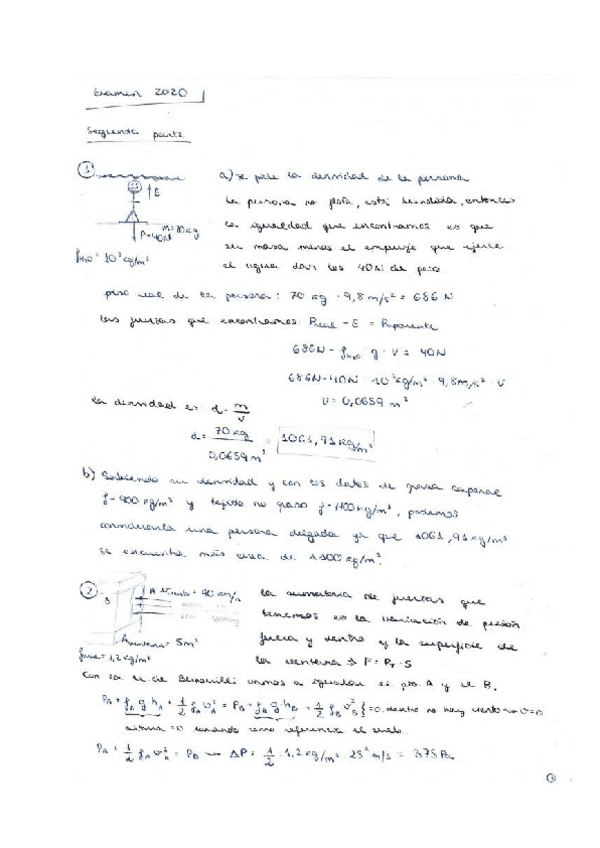 Examen 2020
Segunda parte
1 a) se pide la densidad de la persona
E
P=40N m=70kg
ρH2O = 10³ kg/m³
La persona no flota, está hundida, entonces
la igualdad que encontramos es que
su masa menos el empuje que ejerce
el agua dan los 40N de peso
peso real de la persona: 70 kg · 9,8 m/s² = 686 N
las fuerzas que encontramos: Preal - E = Paparente
686N - ρH2O · g · V = 40N
686N-40N = 10³kg/m³ · 9,8m/s² · V
V = 0,0659 m³
la densidad es d = m/V
d = 70 kg / 0,0659 m³ = 1061,91 kg/m³
b) Sabiendo su densidad y con los datos de grasa corporal
ρ=900 kg/m³ y tejido no graso ρ=1100 kg/m³, podemos
considerarla una persona delgada ya que 1061,91 kg/m³
se encuentra más cerca de 1100 kg/m³.
2 A Viento = 90 km/h
B
Aventana = 5m²
ρaire = 1,2 kg/m³
la sumatoria de fuerzas que
tenemos es la variación de presión
fuera y dentro y la superficie de
la ventana → F = PT · S
Con la de Bernouilli vamos a igualar el pto. A y el B.
PA + ρA g hA + 1/2 ρA v²A = PB + ρB g hB + 1/2 ρB v²B } =0, dentro no hay viento → v=0
altura =0 tomando como referencia el suelo
PA + 1/2 ρA v²A = PB → ΔP = 1/2 · 1,2 kg/m³ · 25² m/s = 375 Pa